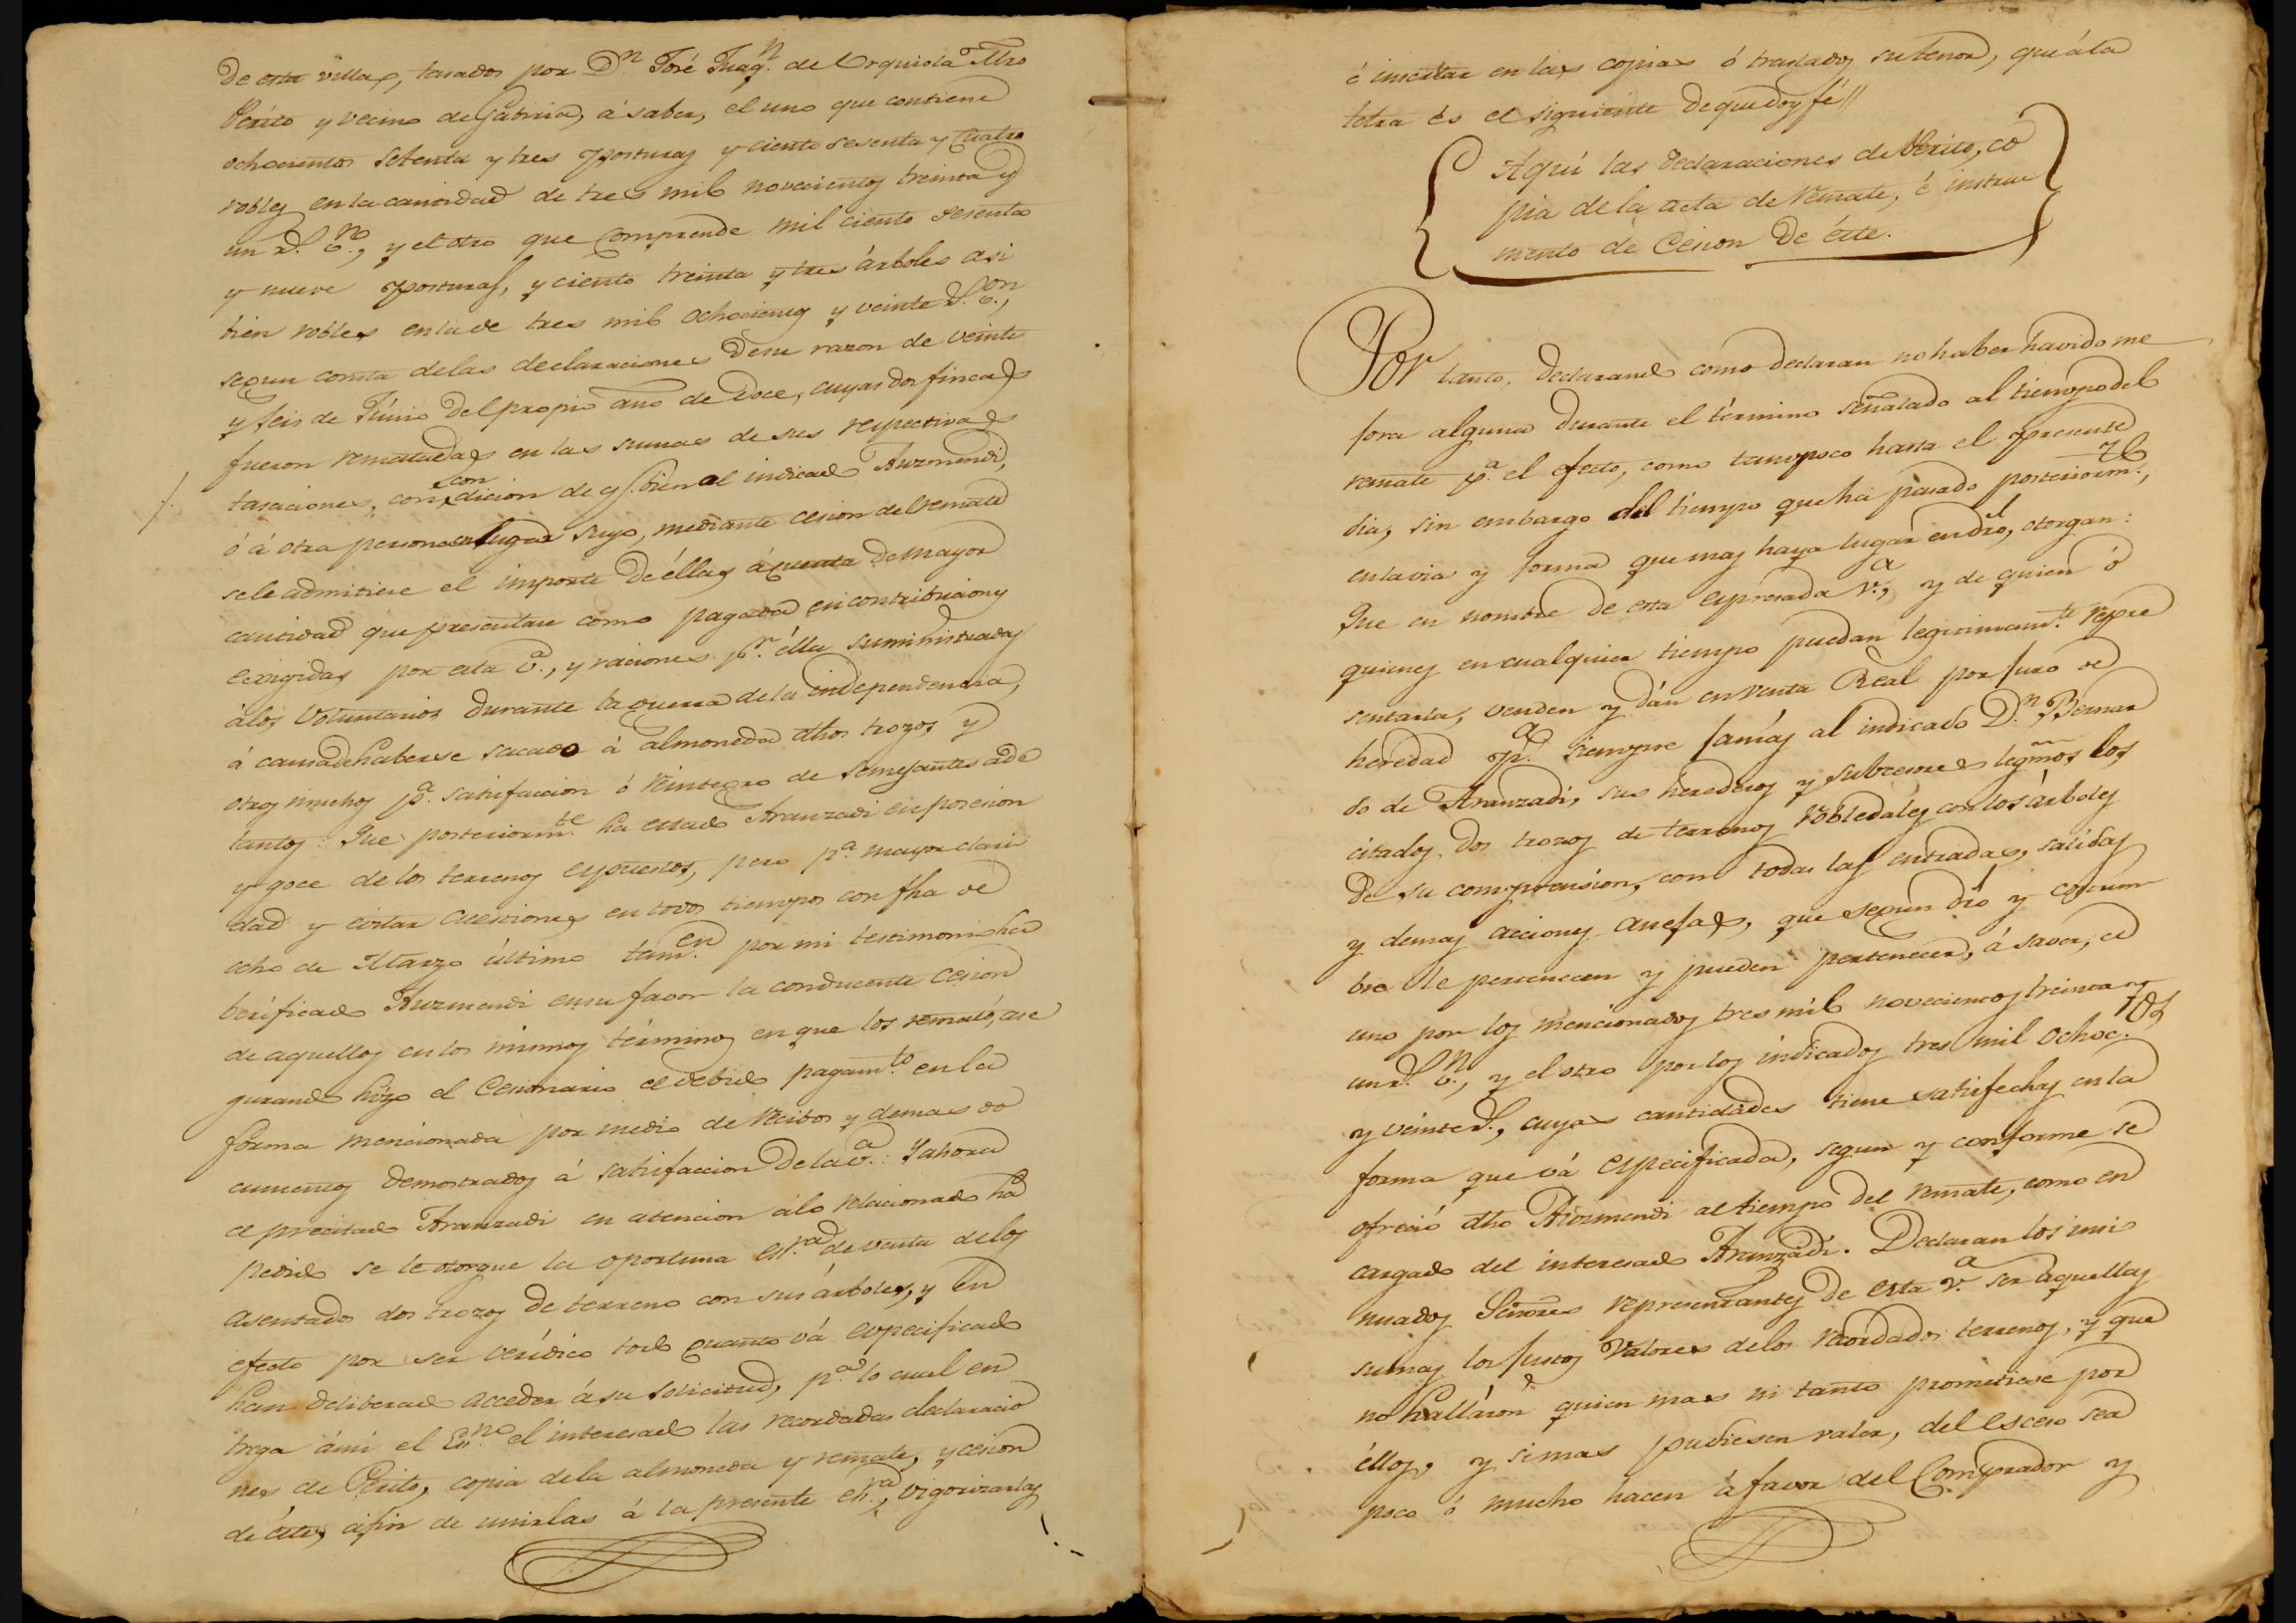 de esta villa, tasados por Dn. José Juaqn. de Urquiola Mro
Périto y vecino de Gabiria, á saber, el uno que contiene
ochocientos setenta y tres posturas y ciento sesenta y cuatro
robles en la cantidad de tres mil novecientos treinta y
un rs. vn., y el otro que comprende mil ciento sesenta
y nueve posturas, y ciento treinta y tres árboles asi
bien robles en la de tres mil ochocientos y veinte rs. von.,
segun consta de las declaraciones de su razon de veinte
y seis de Júnio del propio año de Doce, cuyas dos fincas
fueron rematadas en las sumas de sus respectivas
tasaciones, con condicion de q. si bien al indicado Auzmendi,
ó á otra persona en lugar suyo, mediante cesion de remate
se le admitiese el importe de éllas á quenta de mayor
cantidad que presentare como pagada en contribuciones
exigidas por esta va., y raciones pr. élla suministradas
á los Voluntarios durante la guerra de la independencia,
á causa de haberse sacado á almoneda dhos trozos y
otros muchos pa. satisfaccion ó reintegro de semejantes ade
lantos: Que posteriormte. ha estado Aranzadi en posesion
y goce de los terrenos espuestos, pero pa. mayor clari
dad y evitar cuestiones en todos tiempos con fha de
ocho de Marzo último tamen. por mi testimonio ha
berificado Auzmendi en su favor la conducente cesion
de aquellos en los mismos términos en que los remató, ase
gurando hizo el Cesionario el debido pagamto. en la
forma mencionada por medio de recibos y demas do
cumentos demostrados á satisfaccion de la va.: Y ahora
el precitado Aranzadi en atencion á lo relacionado ha
pedido se le otorgue la oportuna essra. de venta de los
asentados dos trozos de terreno con sus árboles, y en
efecto por ser verídico todo quanto vá especificado
han deliberado acceder á su solicitud, pa. lo cual en
trega á mi el Essno. el interesado las recordadas declaracio
nes de Périto, copia de la almoneda y remate, y cesion
de éste, á fin de unirlas á la presente essra., vigorizarlas
é insertar en las copias ó traslados su tenor, que á la
letra és el siguiente de que doy fé //
Aquí las declaraciones de Périto, co
pia de la acta de Remate, é instru
mento de Cesion de éste.
Por tanto, declarando como declaran no haber havido me
jora alguna durante el término señalado al tiempo del
remate pa. el efecto, como tampoco hasta el presente
dia, sin embargo del tiempo que ha pasado posteriormte.,
en la via y forma que mas haya lugar en dro, otorgan:
Que en nombre de esta espresada va., y de quien ó
quienes en cualquier tiempo puedan legitimamte. repre
sentarla, venden y dán en venta Real por juro de
heredad pa. siempre jamás al indicado Dn. Bernar
do de Aranzadi, sus herederos y subcesores legmos los
citados dos trozos de terrenos robledales con los árboles
de su comprension, con todas las entradas, salidas
y demas acciones anejas, que segun dro y costum
bre le pertenecen y pueden pertenecer, á saver, el
uno por los mencionados tres mil novecientos treinta y
un rs. vn., y el otro por los indicados tres mil ochoctos.
y veinte rs., cuyas cantidades tiene satisfechas en la
forma que vá especificada, segun y conforme se
ofreció dho Auzmendi al tiempo del remate, como en
cargado del interesado Aranzadi. Declaran los insi
nuados Señores representantes de esta va. ser aquellas
sumas los justos valores de los recordados terrenos, y que
no halláron quien mas ni tanto prometiese por
éllos, y si mas pudiesen valer, del esceso sea
poco ó mucho hacen á favor del Comprador y